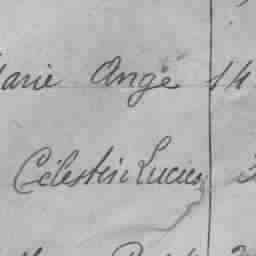 Marie Ange 14
Célestin Lucien 3